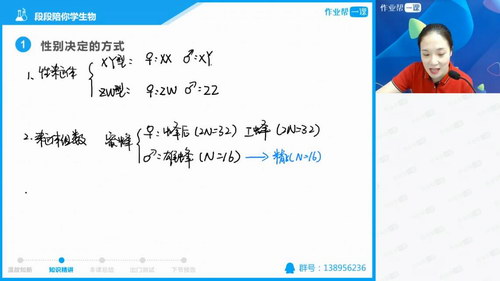 段段陪你学生物
作业帮一课
作业帮一课
1 性别决定的方式
1、性染色体 XY型: ♀:XX ♂:XY
ZW型: ♀:ZW ♂:ZZ
2. 染色体组数 蜜蜂 ♀:蜂后 (2N=32) 工蜂 (2N=32)
♂=雄蜂 (N=16) → 精子(N=16)
温故知新 知识精讲 本课总结 出门测试 下节预告
群号：138956236